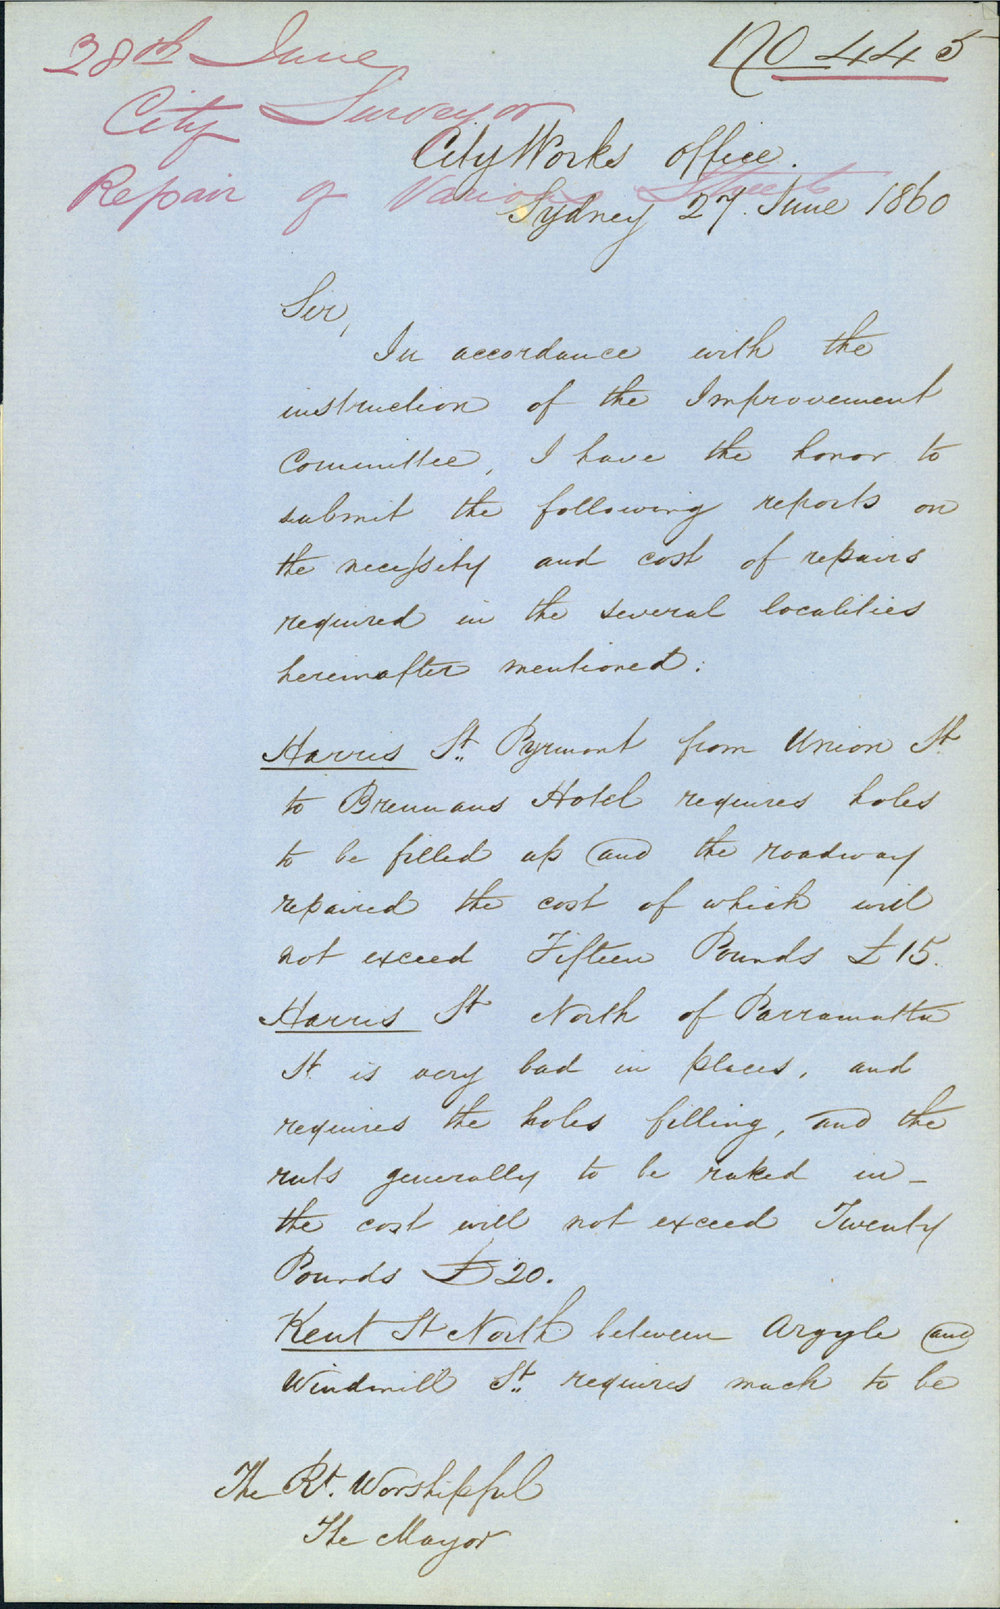 28th June
No 445
City Surveyor
Repair of Various Streets
City Works office.
Sydney 27. June 1860
Sir,
In accordance with the
instruction of the Improvement
Committee, I have the honor to
submit the following reports on
the necessity and cost of repairs
required in the several localities
hereinafter mentioned:
Harris St. Pyrmont from Union St
to Brennans Hotel requires holes
to be filled up and the roadway
repaired the cost of which will
not exceed Fifteen Pounds £15.
Harris St North of Parramatta
St. is very bad in places, and
requires the holes filling, and the
ruts generally to be raked in_
the cost will not exceed Twenty
Pounds £20.
Kent St North between Argyle and
Windmill St. requires much to be
The Rt. Worshipful
The Mayor